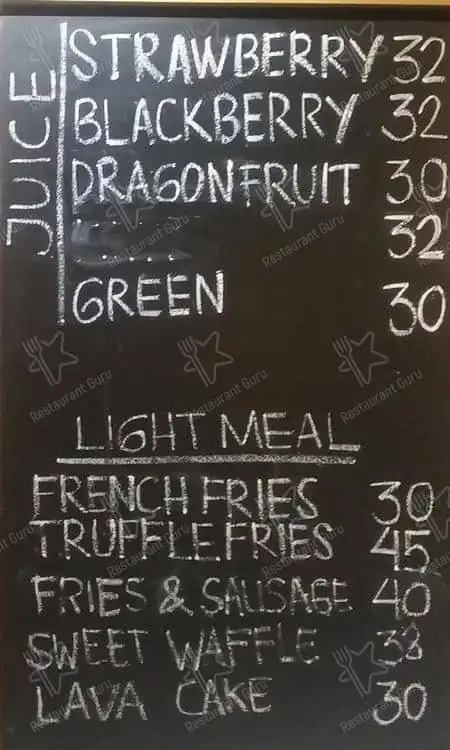 JUICE
STRAWBERRY 32
BLACKBERRY 32
DRAGONFRUIT 30
32
GREEN 30
LIGHT MEAL
FRENCH FRIES 30
TRUFFLE FRIES 45
FRIES & SAUSAGE 40
SWEET WAFFLE 38
LAVA CAKE 30
Restaurant Guru